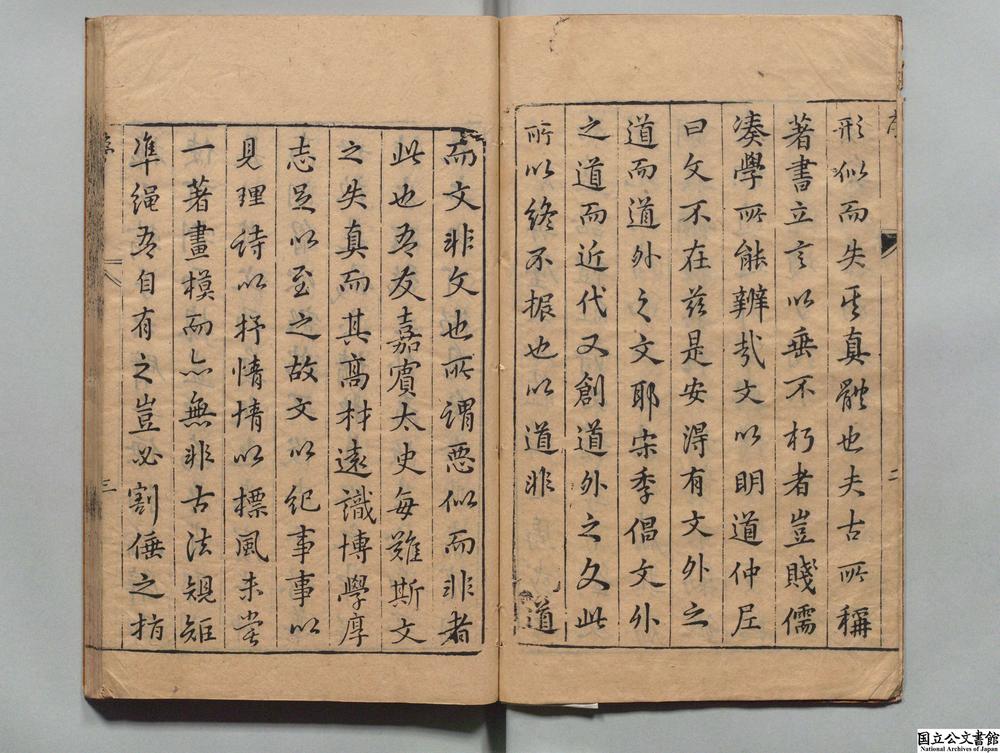 形似而失其真體也夫古所稱
著書立言以垂不朽者豈賤儒
湊學所能辨哉文以明道仲尼
曰文不在茲是安淂有文外之
道而道外之文耶宋季倡文外
之道而近代又創道外之文此
所以終不振也以道非
道
而文非文也所謂惡似而非者
此也吾友嘉賓太史每難斯文
之失真而其髙材遠識博學厚
志足以至之故文以紀事事以
見理詩以抒情情以標風未嘗
一著畫模而亦無非古法規矩
準繩吾自有之豈必割倕之指
序
二
三
国立公文書館
National Archives of Japan